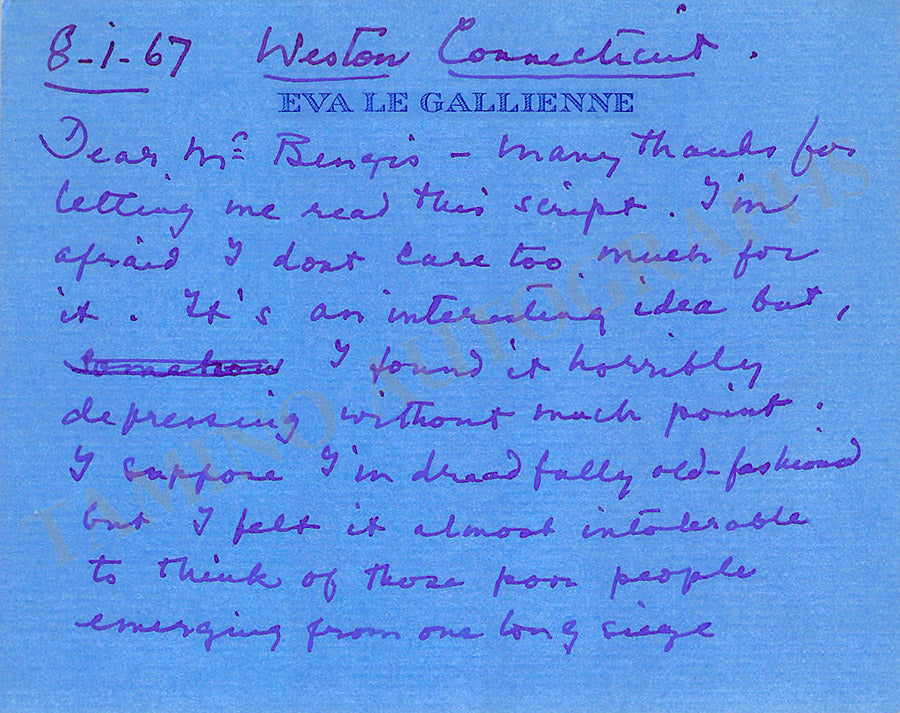 8-1-67 Weston Connecticut.
EVA LE GALLIENNE
Dear Mr Bengis – Many thanks for
letting me read this script. I'm
afraid I dont care too much for
it. It's an interesting idea but,
somehow I found it horribly
depressing without much point.
I suppose I'm dreadfully old-fashioned
but I felt it almost intolerable
to think of those poor people
emerging from one long siege
TAMINO AUTOGRAPHS